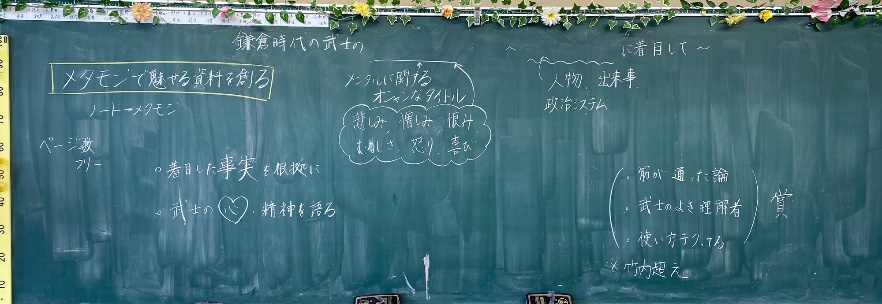 鎌倉時代の武士の
〜 〜〜〜 に着目して〜
メタモジで魅せる資料を創る
ノート→メタモジ
ページ数
フリー
。着目した事実を根拠に
。武士の心、精神を語る
メンタルに関する
オシャンなタイトル
悲しみ、憎しみ、恨み、
むなしさ、怒り、喜び
人物、出来事、
政治システム
。筋が通った論
。武士のよき理解者
。使い方テクってる
賞
※竹内超え